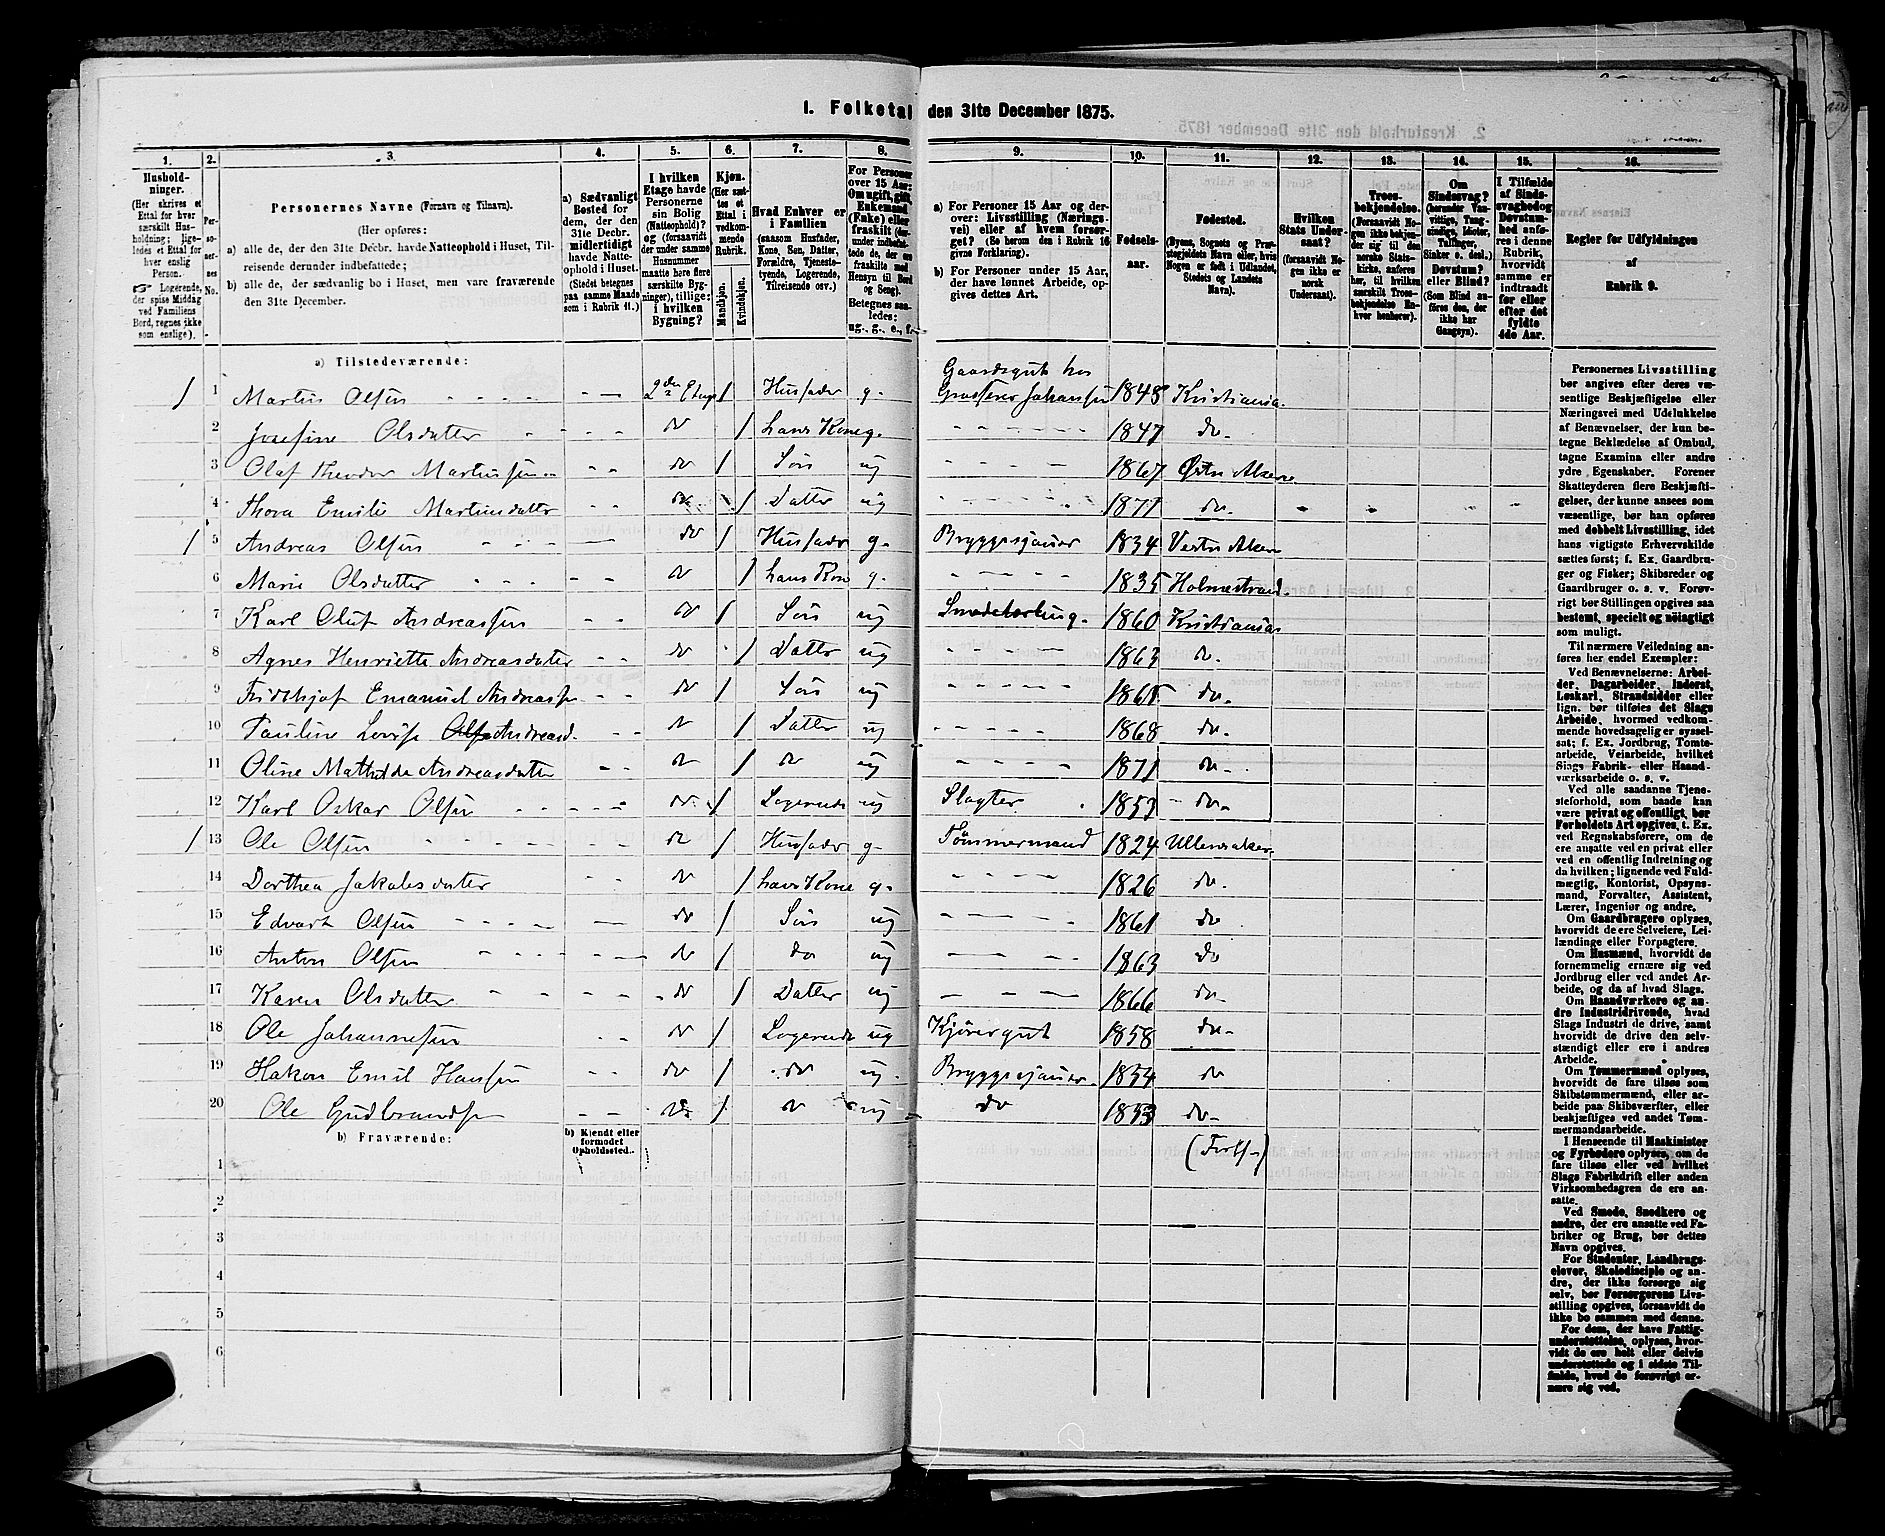 1. Folketal den 31te December 1875.
1. 2. 3. 4. 5. 6. 7. 8. 9. 10. 11. 12. 13. 14. 15. 16.
Husholdninger.
(Her skrives et
Ettal for hver
særskilt Husholdning;
ligeledes et Ettal for
hver enslig
Person.
☞ Logerende,
der spise Middag
ved Familiens
Bord, regnes ikke
som enslige).
Personernes No.
Personernes Navne (Fornavn og Tilnavn).
(Her opføres:
a) alle de, der den 31te Decbr. havde Natteophold i Huset, Tilreisende derunder indbefattede;
b) alle de, der sædvanlig bo i Huset, men vare fraværende
den 31te December.
a) Sædvanligt
Bosted for
dem, der den
31te Decbr.
midlertidigt
havde Natteophold i Huset.
(Stedet betegnes
paa samme Maade
som i Rubrik 11.)
I hvilken
Etage havde
Personerne
sin Bolig
(Natteophold)?
og (forsaavidt
der under samme
Husnummer
maatte høre flere
særskilte Bygninger), tillige:
i hvilken
Bygning?
Kjøn.
(Her sættes et
Ettal i
vedkommende
Rubrik.
Mandkjøn.
Kvindekjøn.
Hvad Enhver er
i Familien
(saasom Husfader,
Kone, Søn, Datter,
Forældre, Tjenestetyende, Logerende,
Tilreisende osv.)
For Personer
over 15 Aar:
Om ugift, gift,
Enkemand
(Enke) eller
fraskilt
Betegnes saaledes:
ug., g., e., f.
a) For Personer 15 Aar og derover: Livsstilling (Næringsvei) eller af hvem forsørget? (Se herom den i Rubrik 16
givne Forklaring).
b) For Personer under 15 Aar,
der have lønnet Arbeide, opgives dettes Art.
Fødselsaar.
Fødested.
(Byens, Sognets og Præstegjeldets Navn eller, hvis
Nogen er født i Udlandet,
Stedets og Landets
Navn).
Hvilken
Stats Undersaat?
(forsaavidt Nogen ikke er
norsk
Undersaat).
Troesbekjendelse.
(Forsaavidt Nogen ikke bekjender sig til den
norske Statskirke, anføres
her, til hvilken
særskilt Troesbekjendelse Enhver henhører).
Om
Sindssvag?
(herunder Vanvittige, Tungsindige, Idioter,
Tullinger,
Sinker o. desl.)
Døvstum?
eller Blind?
(Som Blind anføres den, der
ikke har
Gangsyn).
I Tilfælde
af Sindssvaghed og
Døvstumhed anføres i denne
Rubrik,
hvorvidt
samme er
indtraadt
før eller
efter det
fyldte
4de Aar.
Regler for Udfyldningen
af
Rubrik 9.
a) Tilstedeværende:
Gaardsgut hos
1 1 Martin Olsen 2den Etage 1 Husfader g. Grosserer Johansen 1848 Kristiania
2 Josefine Olsdatter do 1 hans Kone g. 1847 do
3 Olaf Theodor Martinsen do 1 Søn ug 1867 Østre Akers
4 Thora Emilie Martinsdatter do 1 Datter ug 1871 do
1 5 Andreas Olsen do 1 Husfader g. Bryggesjauer 1834 Vestre Aker
6 Marie Olsdatter do 1 hans Kone g. 1835 Holmestrand
7 Karl Oluf Andreassen do 1 Søn ug 1860 Kristiania
8 Agnes Henriette Andreasdatter do 1 Datter ug 1863 do
9 Fridthjof Emanuel Andreassen do 1 Søn ug 1865 do
10 Pauline Lovise Andreasd. do 1 Datter ug 1868 do
11 Oline Mathilde Andreasdatter do 1 do ug 1871 do
12 Karl Oskar Olsen do 1 Logerende ug Slagter 1853 do
1 13 Ole Olsen do 1 Husfader g. Tømmermand 1824 Ullensaker
14 Dorthea Jakobsdatter do 1 hans Kone g. 1826 do
15 Edvart Olsen do 1 Søn ug 1861 do
16 Anton Olsen do 1 do ug 1863 do
17 Karen Olsdatter do 1 Datter ug 1866 do
18 Ole Johannesen do 1 Logerende ug Kjøregut 1858 do
19 Hakon Emil Hansen do 1 do ug. Bryggesjauer 1854 do
20 Ole Gudbrandsen do 1 do ug do 1853 do
(Forts.)
b) Fraværende:
b) Kjendt eller
formodet
Opholdssted.
1
2
3
4
5
6
Personernes Livsstilling
bør angives efter deres væsentlige Beskjæftigelse eller
Næringsvei med Udelukkelse
af Benævnelser, der kun betegne Beklædelse af Ombud,
tagne Examina eller andre
ydre Egenskaber. Forener
Skatteyderen flere Beskjæftigelser, der kunne ansees som
væsentlige, bør han opføres
med dobbelt Livsstilling, idet
hans vigtigste Erhvervskilde
sættes først; f. Ex. Gaardbruger og Fisker; Skibsreder og
Gaardbruger o. s. v. Forøvrigt bør Stillingen opgives saa
bestemt, specielt og nøiagtigt
som muligt.
Til nærmere Veiledning anføres her endel Exempler:
Ved Benævnelserne: Arbeider, Dagarbeider, Inderst,
Løskarl, Strandsidder eller
lign. bør tilføies det Slags
Arbeide, hvormed vedkommende hovedsagelig er sysselsat; f. Ex. Jordbrug, Tomtearbeide, Veiarbeide, hvilket
Slags Fabrik- eller Haandværksarbeide o. s. v.
Ved alle saadanne Tjenesteforhold, som baade kan
være privat og offentligt, bør
Forholdets Art opgives, t. Ex.
ved Regnskabsførere, om de
ere ansatte ved en privat eller
ved en offentlig Indretning og
da hvilken; lignende ved Fuldmægtig, Kontorist, Opsynsmand, Forvalter, Assistent,
Lærer, Ingeniør og andre.
Om Gaardbrugere oplyses,
hvorvidt de ere Selveiere, Leilændinge eller Forpagtere.
Om Husmænd, hvorvidt de
fornemmelig ernære sig ved
Jordbrug eller ved andet Arbeide, og da af hvad Slags.
Om Haandværkere og andre Industridrivende, hvad
Slags Industri de drive, samt
hvorvidt de drive den selvstændigt eller ere i andres
Arbeide.
Om Tømmermænd oplyses,
hvorvidt de fare tilsøs som
Skibstømmermænd, eller arbeide paa Skibsværfter, eller
beskjæftiges ved andet Tømmermandsarbeide.
I Henseende til Maskinister
og Fyrbødere oplyses, om de
fare tilsøs eller ved hvilket
Slags Fabrikdrift eller anden
Virksomhedsgren de ere ansatte.
Ved Smede, Snedkere og
andre, der ere ansatte ved Fabriker og Brug, bør dettes
Navn opgives.
For Studenter, Landbrugselever, Skoledisciple og andre, der ikke forsørge sig
selv, bør Forsørgerens Livsstilling opgives, forsaavidt de
ikke bo sammen med denne.
For dem, der have Fattigunderstøttelse, oplyses, hvorvidt de ere helt eller delvis
understøttede og i sidste Tilfælde, hvad de forøvrigt ernære sig ved.